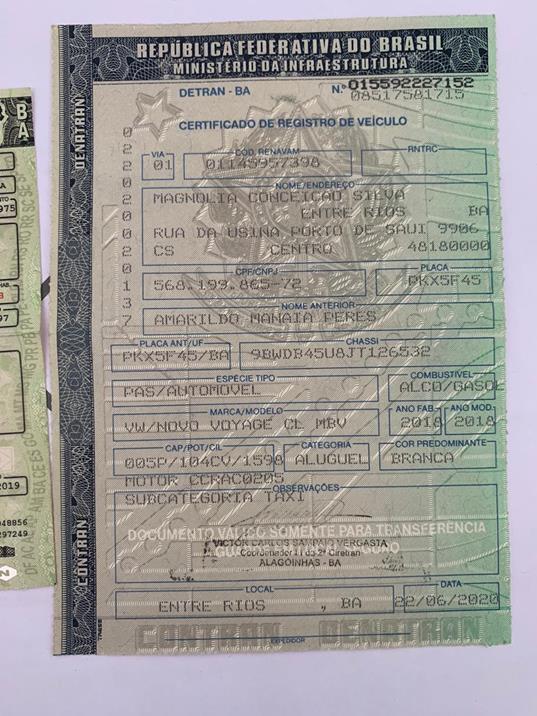 REPÚBLICA FEDERATIVA DO BRASIL
MINISTÉRIO DA INFRAESTRUTURA
DETRAN - BA Nº 015592227152
08517581715
CERTIFICADO DE REGISTRO DE VEÍCULO
VIA CÓD. RENAVAM RNTRC
01 01145957398
NOME/ENDEREÇO
MAGNOLIA CONCEICAO SILVA
ENTRE RIOS BA
RUA DA USINA PORTO DE SAUI 9906
CS CENTRO 48180000
CPF/CNPJ PLACA
568.199.865-72 PKX5F45
NOME ANTERIOR
AMARILDO MANAIA PERES
PLACA ANT/UF CHASSI
PKX5F45/BA 9BWDB45U8JT126532
ESPÉCIE TIPO COMBUSTÍVEL
PAS/AUTOMOVEL ALCO/GASOL
MARCA/MODELO ANO FAB. ANO MOD.
VW/NOVO VOYAGE CL MBV 2018 2018
CAP/POT/CIL CATEGORIA COR PREDOMINANTE
005P/104CV/1598 ALUGUEL BRANCA
MOTOR CCRAC0205
OBSERVAÇÕES
SUBCATEGORIA TAXI
DOCUMENTO VÁLIDO SOMENTE PARA TRANSFERÊNCIA
VERGASTA
ALAGOINHAS - BA
LOCAL DATA
ENTRE RIOS , BA 22/06/2020
CONTRAN DENATRAN
EXPEDIDOR
DENATRAN
CONTRAN
B
A
975
97
2019
048856
297249